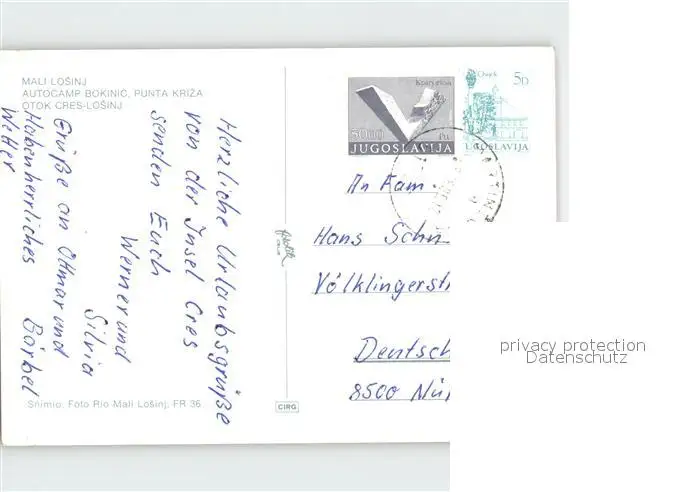 MALI LOŠINJ
AUTOCAMP BOKINIĆ, PUNTA KRIŽA
OTOK CRES-LOŠINJ
Herzliche Urlaubsgrüße
von der Insel Cres
senden Euch
Werner und
Silvia
Grüße an Ottmar und
Bärbel
Haben herrliches
Wetter
Snimio: Foto Rio Mali Lošinj, FR 36
CIRG
50.00
JUGOSLAVIJA
Osijek
5D
JUGOSLAVIJA
An Fam.
Hans Schm
Völklingerstr
Deutsch
8500 Nür
privacy protection
Datenschutz